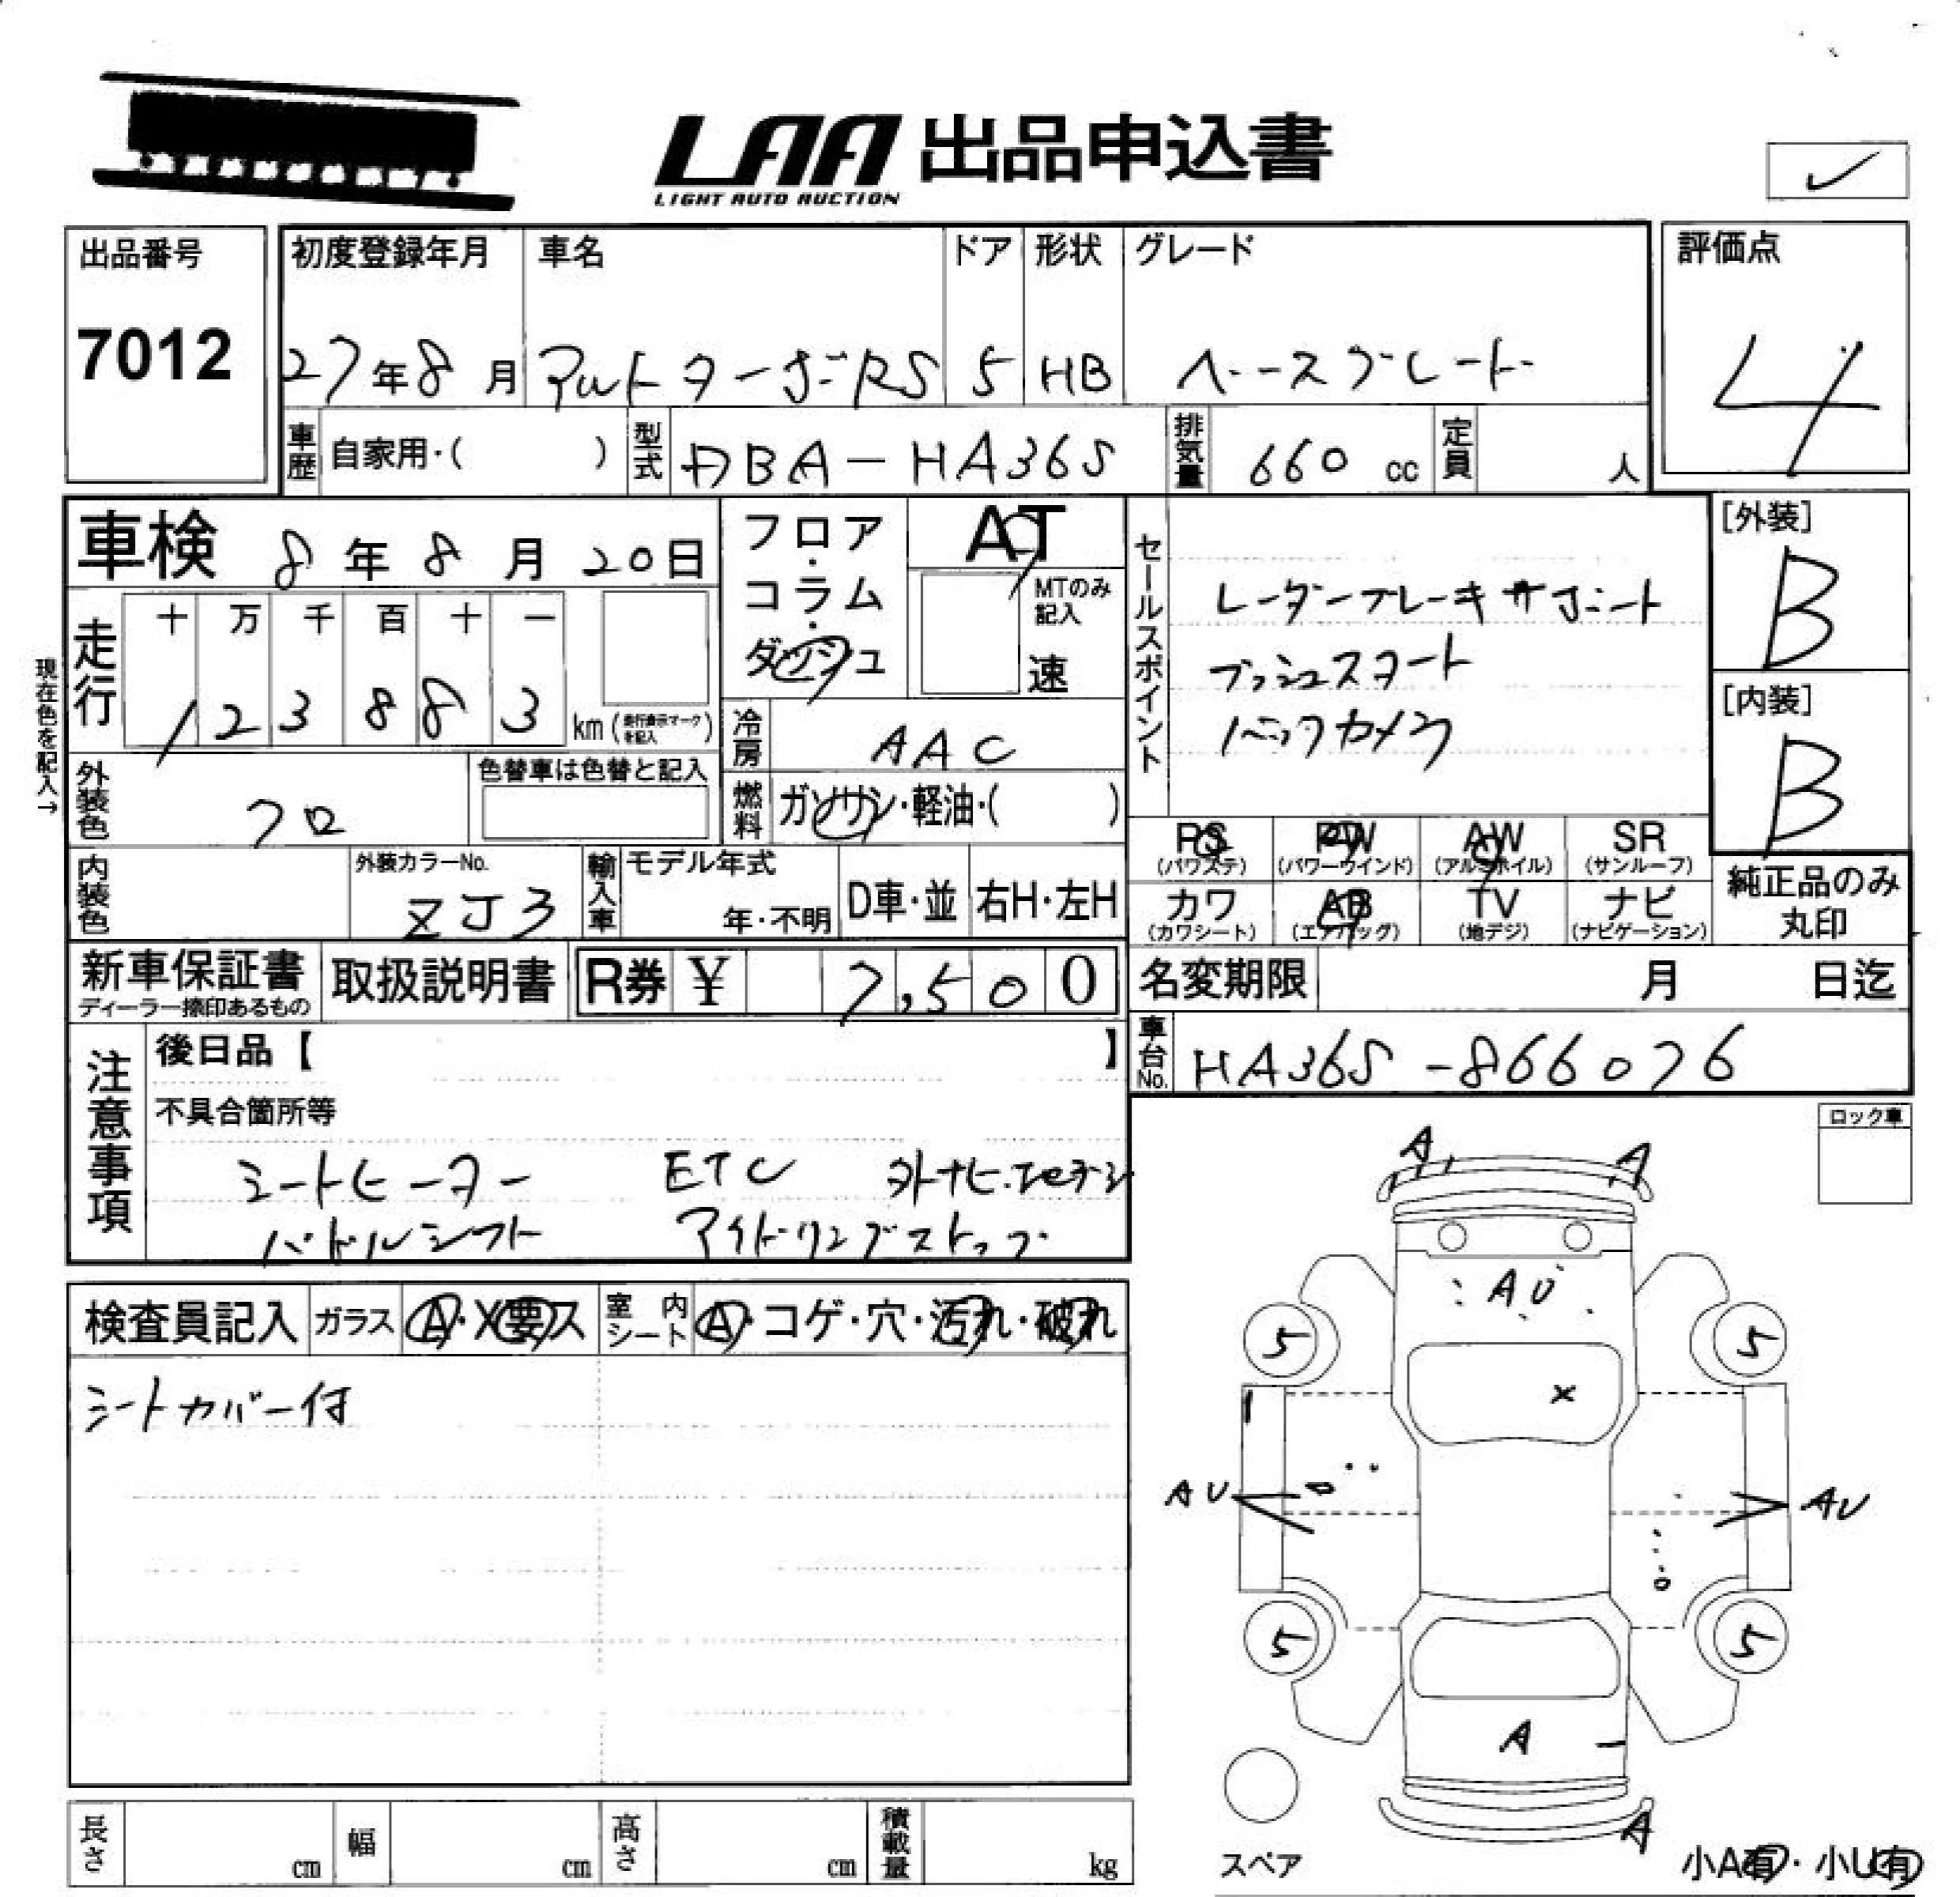 LAA 出品申込書
LIGHT AUTO AUCTION
✓
出品番号
7012
初度登録年月
27年8月
車名
アルトターボRS
ドア
5
形状
HB
グレード
ベースグレード
評価点
4
車歴 自家用・( )
型式 DBA-HA36S
排気量 660 cc
定員 人
車検 8年8月20日
フロア・コラム・ダッシュ
AT
MTのみ記入
速
セールスポイント
レーダーブレーキサポート
プッシュスタート
バックカメラ
[外装]
B
[内装]
B
現在色を記入→
走行
十 万 千 百 十 一
1 2 3 8 8 3 km (走行表示マークを記入)
冷房 AAC
外装色 クロ
色替車は色替と記入
燃料 ガソリン・軽油・( )
PS (パワステ)
PW (パワーウインド)
AW (アルミホイル)
SR (サンルーフ)
カワ (カワシート)
AB (エアバッグ)
TV (地デジ)
ナビ (ナビゲーション)
純正品のみ丸印
内装色
外装カラーNo.
ZJ3
輸入車
モデル年式
年・不明
D車・並
右H・左H
新車保証書
ディーラー捺印あるもの
取扱説明書
R券 ¥ 7,500
名変期限 月 日迄
車台No. HA36S-866076
注意事項
後日品【 】
不具合箇所等
シートヒーター ETC 外ナビ・地デジ
パドルシフト アイドリングストップ
ロック車
検査員記入
ガラス A・X要ス
室内シート A・コゲ・穴・汚れ・破れ
シートカバー付
A A
AU
5 5
X
AU AU
5 5
A
A
スペア
小A有・小U有
長さ cm
幅 cm
高さ cm
積載量 kg